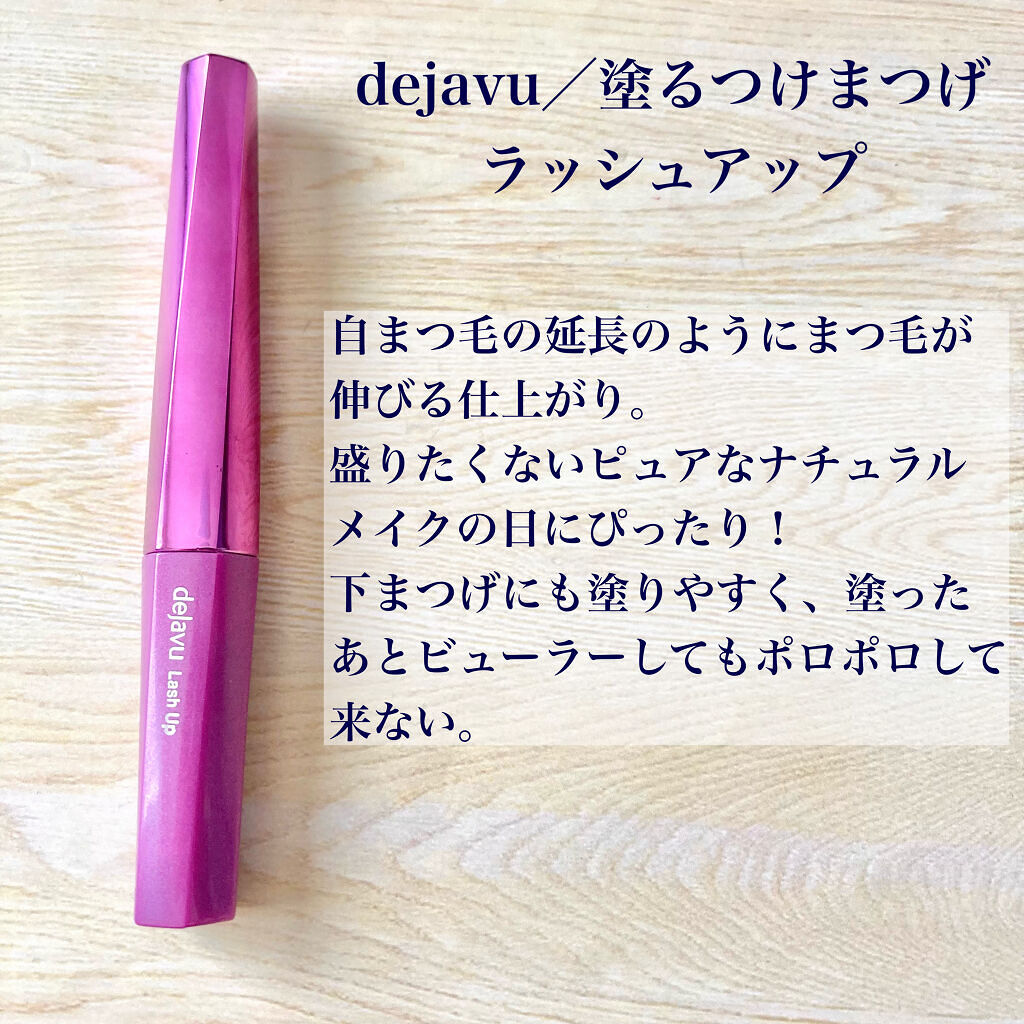 dejavu／塗るつけまつげ
ラッシュアップ
自まつ毛の延長のようにまつ毛が
伸びる仕上がり。
盛りたくないピュアなナチュラル
メイクの日にぴったり！
下まつげにも塗りやすく、塗った
あとビューラーしてもポロポロして
来ない。
dejavu Lash Up